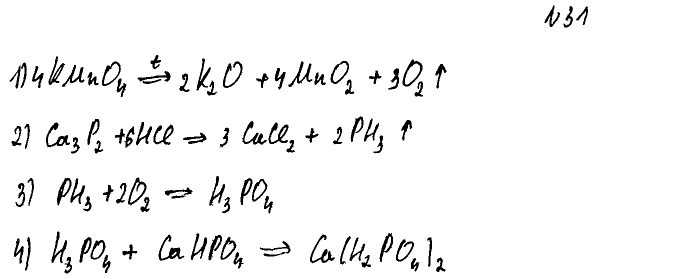 №31
1) 4KMnO₄ =ᵗ=> 2K₂O + 4MnO₂ + 3O₂↑
2) Ca₃P₂ + 6HCl => 3CaCl₂ + 2PH₃↑
3) PH₃ + 2O₂ => H₃PO₄
4) H₃PO₄ + CaHPO₄ => Ca(H₂PO₄)₂